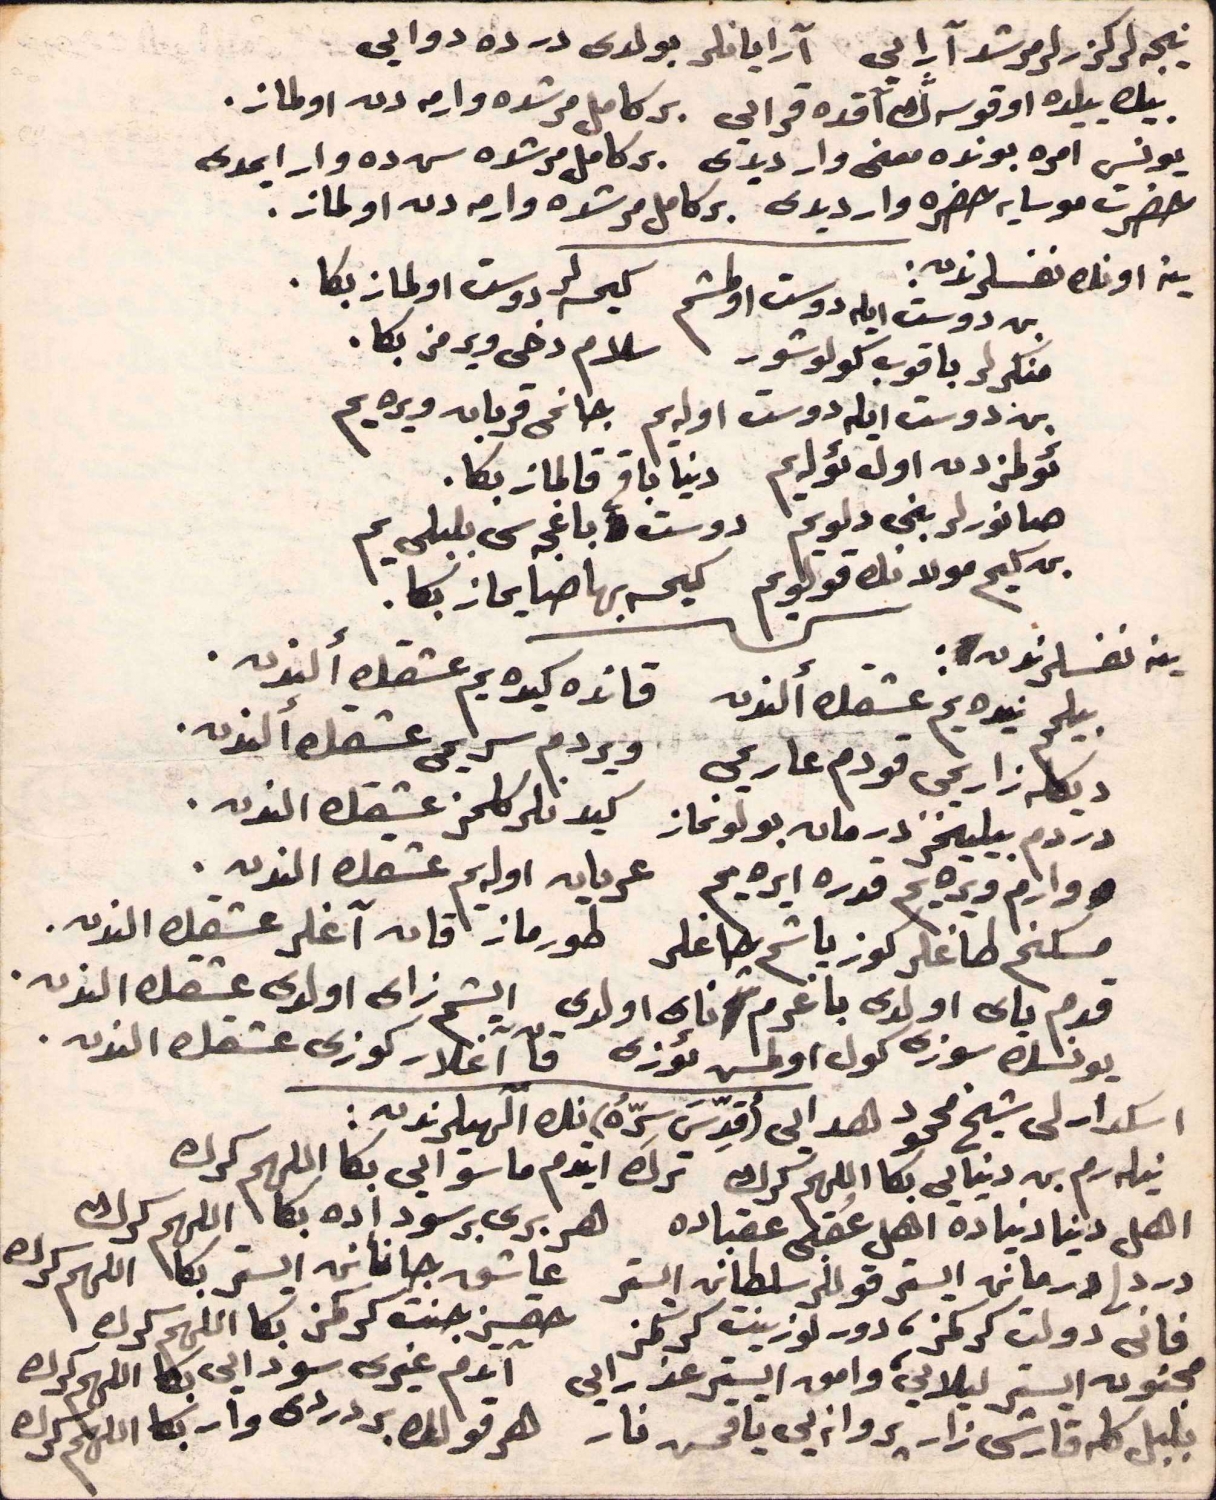 نیجه لر کزرلر مرشد آرایی   آرایانلر بولدی درده دوایی
بیك بیلده اوقوسه ڭ آقده قرایی . بر کامل مرشده وارمه دن اولماز .
یونس امره بونده معنی وار دیدی . بر کامل مرشده سن ده وار ایمدی
حضرت موسایه خضره وار دیدی . بر کامل مرشده وارمه دن اولماز .
ینه اونك نفسلرندن :
بن دوست ایله دوست اولمشم   کیمسه لر دوست اولماز بكا .
منكرلر باقوب كولوشور   سلام دخی ویرمز بكا .
بن دوست ایله دوست اولیم   جانمی قربان ویره یم
ئولمزدن اول ئولیم   دنیا باقی قالماز بكا .
صانورلر بنی دلویم   دوست باغچه سی بلبلی یم
بن كیم مولانك قولویم   كیمسه بها صایماز بكا .
ینه نفسلرندن :
بیلمم نیده یم عشقك ألندن   قانده كیده یم عشقك ألندن .
دیكله زاریمی قودم عاریمی   ویردم سریمی عشقك ألندن .
دردم بیلینمز درمان بولونماز   كیدنلر كلمز عشقك الندن .
وارم ویره یم قدره ایره یم   عریان اولیم عشقك الندن .
مسكنم طاغلر كوز یاشم چاغلر   طورماز قان آغلر عشقك الندن .
قدم یای اولدی باغرم نای اولدی   ایشم زای اولدی عشقك الندن .
یونسك سوزی كول اولمش ئوزی   قان آغلار كوزی عشقك الندن .
اسكدارلی شیخ محمود هدایی (قُدِّسَ سِرُّهُ) نك الٓهیلرندن :
نیله رم بن دنیایی بكا اللهم كرك   ترك ایتدم ماسوایی بكا اللهم كرك
اهل دنیا دنیاده اهل عُقبی عقباده   هر بری بر سوداده بكا اللهم كرك
دردلو درمانن ایستر قوللر سلطانن ایستر   عاشق جانانن ایستر بكا اللهم كرك
فانی دولت كركمز ، دورلو زینت كركمز   حقسز جنت كركمز بكا اللهم كرك
مجنون ایستر لیلایی ، وامق ایستر عذرایی   آیدم غیری سودایی بكا اللهم كرك
بلبل كله قارشی زار پروانه یی یاقمش نار   هر قولك بر دردی وار بكا اللهم كرك